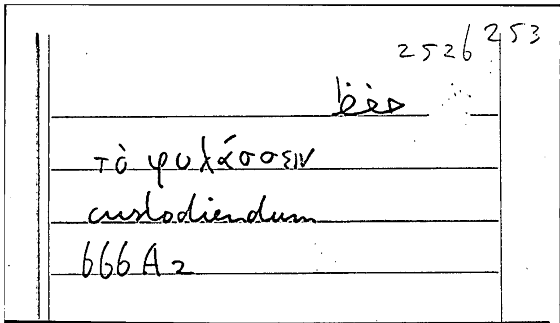 2526 253
حفظ
τὸ φυλάσσειν
custodiendum
666A2